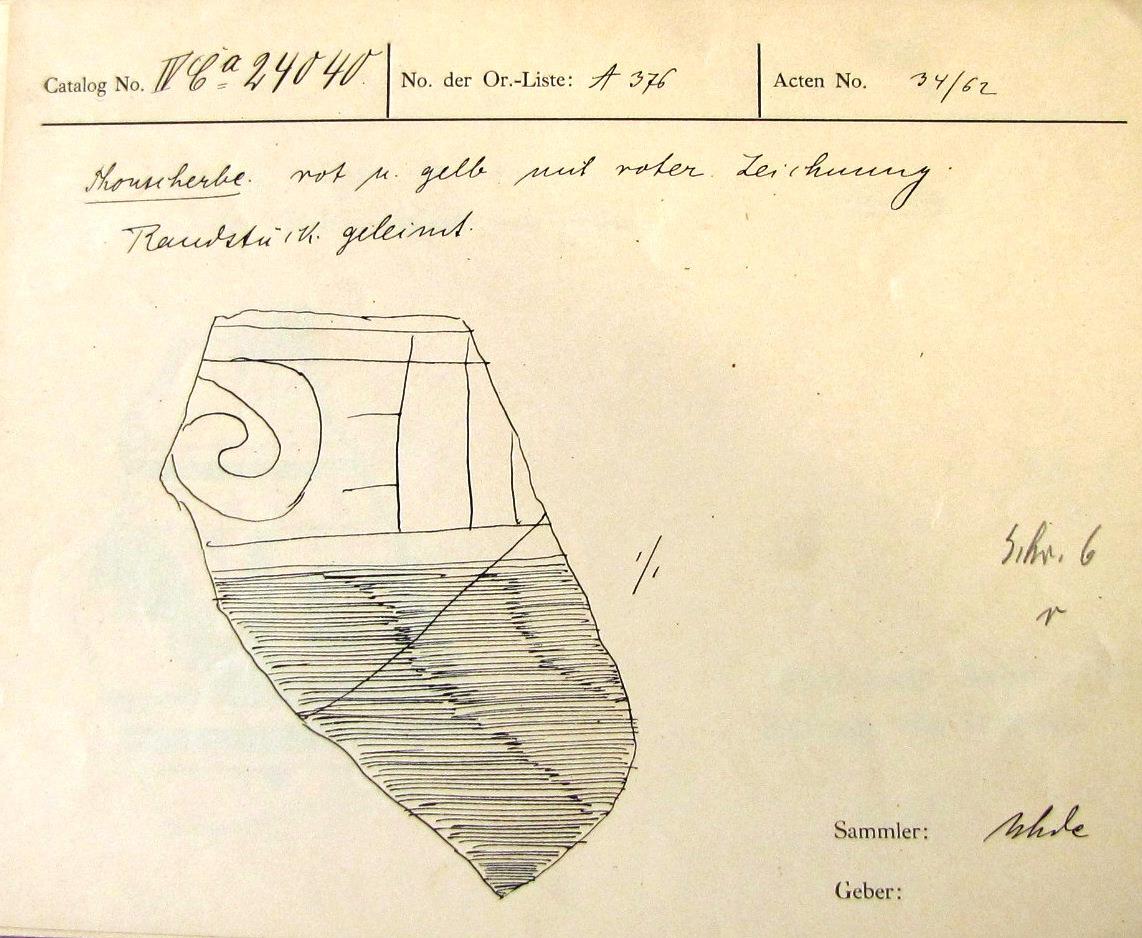 Catalog No. IV Ca 24040. No. der Or.-Liste: A 376 Acten No. 34/62
Thonscherbe. rot u. gelb mit roter Zeichnung.
Randstück. geleimt.
1/1
Schr. 6
r
Sammler: Uhde
Geber: